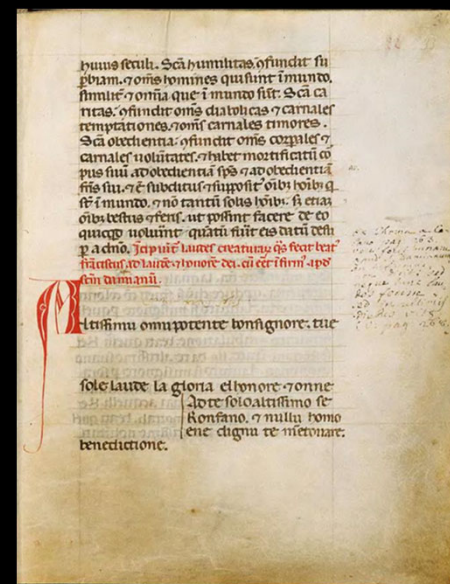 huius seculi. Sc̄a humilitas ꝯfundit su
ꝑbiam. ⁊ om̄s homines qui sunt ī mundo.
similit̄ ⁊ om̄ia que ī mundo sūt. Sc̄a ca
ritas. ꝯfundit om̄s diabolicas ⁊ carnales
temptationes. ⁊ om̄s carnales timores.
Sc̄a obedientia. ꝯfundit om̄s corꝑales ⁊
carnales volūtates. ⁊ habet mortificatū co
pus suū ad obedientiā sp̄s ⁊ ad obedientiā
fr̄is sui. ⁊ ē subditus ⁊ supposit' om̄ibꝫ hoībꝫ q̄
st̄ ī mundo. ⁊ nō tantū solis hoībꝫ. sꝫ etiā
om̄ibꝫ bestiis ⁊ feris. ut possint facere de eo
quicqd voluīnt quātū fūit eis datū desu
ꝑ a dn̄o. Incipiūt laudes creaturaꝝ q̄s fecit beat'
frāciscus ad laudē ⁊ honorē dei. cū eēt ifirm' apd
scm̄ damianū.
Altissimu omnipotente bonsignore. tue
sole laude la gloria elhonore ⁊ onne
Ad te solo altissimo se
Konfano. ⁊ nullu homo
ene dignu te mentouare.
benedictione.